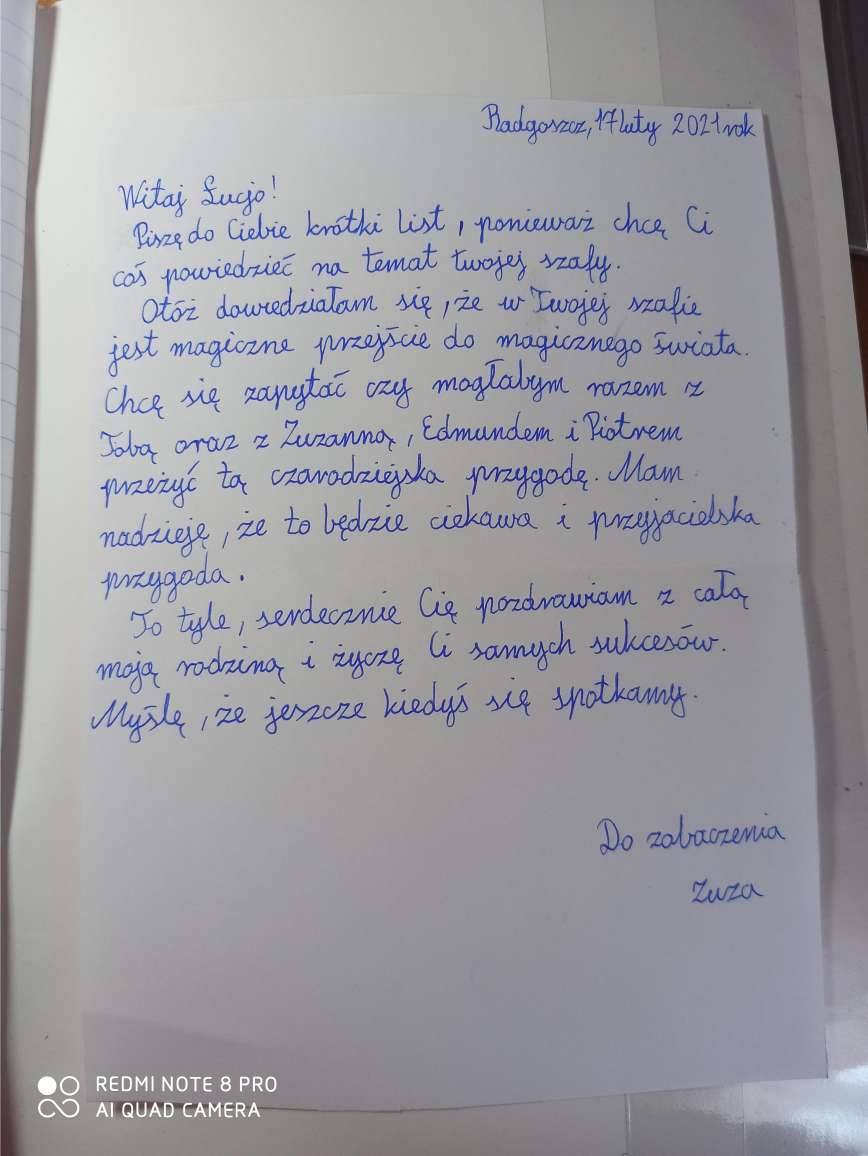 Radgoszcz, 17 luty 2021 rok
Witaj Łucjo!
Piszę do Ciebie krótki list, ponieważ chcę Ci
coś powiedzieć na temat twojej szafy.
Otóż dowiedziałam się, że w Twojej szafie
jest magiczne przejście do magicznego świata.
Chcę się zapytać czy mogłabym razem z
Tobą oraz z Zuzanną, Edmundem i Piotrem
przeżyć tą czarodziejska przygodę. Mam
nadzieję, że to będzie ciekawa i przyjacielska
przygoda.
To tyle, serdecznie Cię pozdrawiam z całą
moją rodziną i życzę Ci samych sukcesów.
Myślę, że jeszcze kiedyś się spotkamy.
Do zobaczenia
Zuza
REDMI NOTE 8 PRO
AI QUAD CAMERA